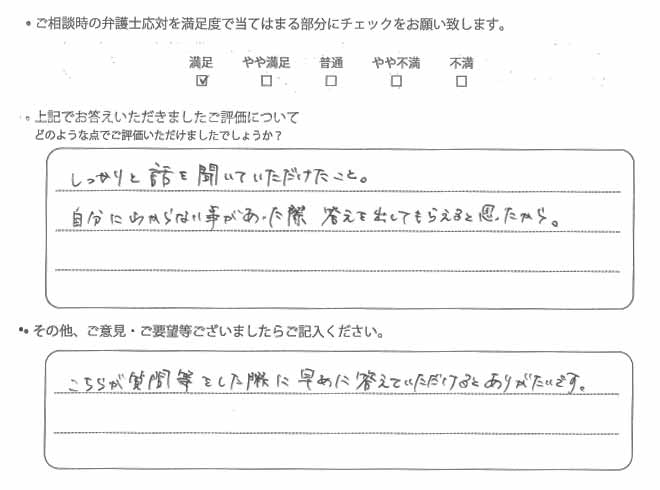 ・ご相談時の弁護士応対を満足度で当てはまる部分にチェックをお願い致します。
満足 やや満足 普通 やや不満 不満
☑ ☐ ☐ ☐ ☐
。上記でお答えいただきましたご評価について
どのような点でご評価いただけましたでしょうか？
しっかりと話を聞いていただけたこと。
自分にわからない事があった際 答えを出してもらえると思ったから。
・その他、ご意見・ご要望等ございましたらご記入ください。
こちらが質問等をした際に早めに答えていただけるとありがたいです。